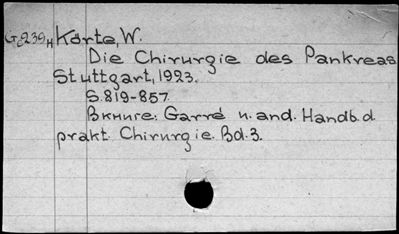 G2239н Körte, W.
Die Chirurgie des Pankreas
Stuttgart, 1923.
S. 819-857.
В книге: Garré u. and. Handb. d
prakt. Chirurgie. Bd. 3.